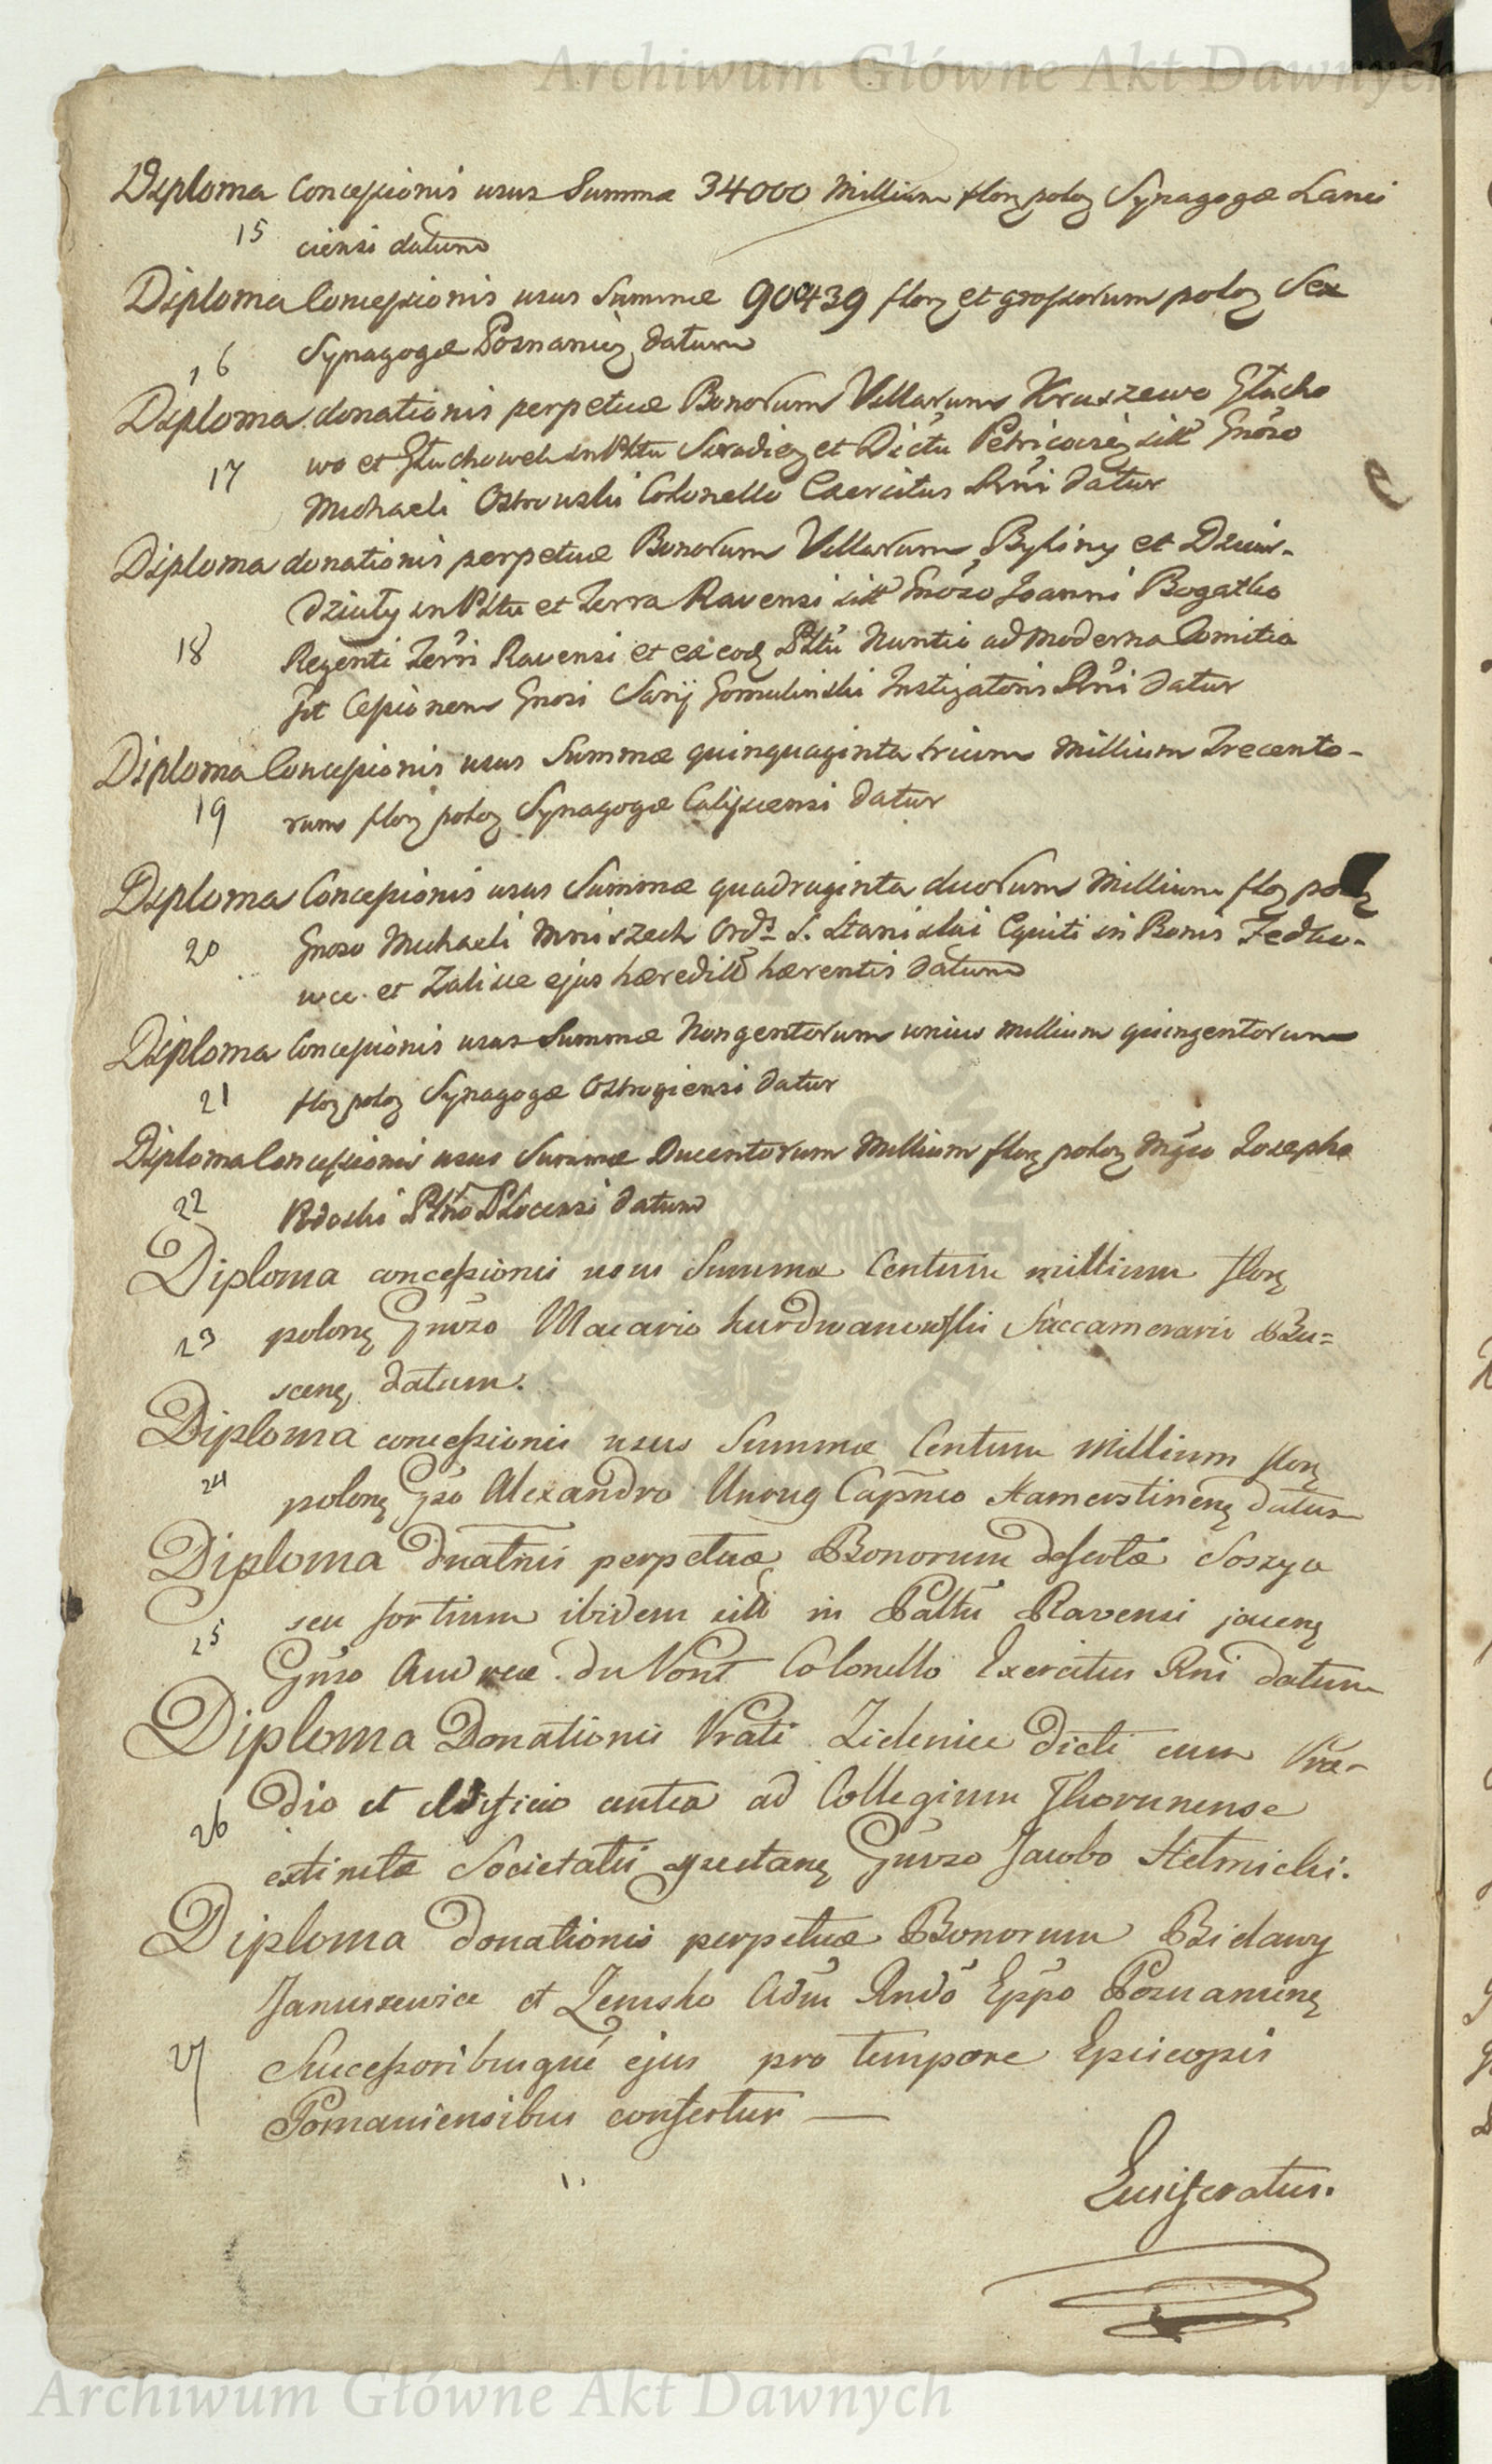 Archiwum Główne Akt Dawnych
Diploma Concessionis usus Summæ 34000 Millium flor polo Synagogæ Lanci
15 ciensi datum
Diploma Concessionis usus Summæ 90439 flor et grossorum polo Sex
16 Synagogæ Posnanien datum
Diploma donationis perpetuæ Bonorum Villarum Kruszewo Głucho
wo et Głuchowek in Pttu Siradien et Dictu Petricovien sitt Gnoso
17 Michaeli Ostrowski Colonello Exercitus Rni datur
Diploma donationis perpetuæ Bonorum Villarum Byliny et Dziur-
dzioły in Pttu et Terra Ravensi sitt Gnoso Joanni Bogatko
18 Regenti Terri Ravensi et ex eod Pttu Nuntio ad moderna Comitia
Cessionem Gnosi Gomulinski Instigatoris Rni datur
Diploma Concessionis usus Summæ quinquaginta trium Millium Trecento-
19 rum flor polo Synagogæ Calissiensi datur
Diploma Concessionis usus Summæ quadraginta duorum Millium flo polo
20 Gnoso Michaeli Mniszech Ord S. Stanislai Equiti in Bonis Fedko-
wce et Zalisce ejus hæredit hærentis datum
Diploma Concessionis usus Summæ Nongentorum unius millium quingentorum
21 flor polo Synagogæ Ostrogiensi datur
Diploma Concessionis usus Summæ Ducentorum Millium flor polo Mgco Josepho
22 Podoski Pttno Plocensi datum
Diploma concessionis usus Summæ Centum millium flor
23 polon Gnoso Macario hurdwanowski Succamerario Bu=
scen datum.
Diploma concessionis usus Summæ Centum Millium flor
24 polon Gso Alexandro Unrug Capneo Hamerstinen datum
Diploma dnatnis perpetuæ Bonorum desertæ Soszyca
seu sortium ibidem sitt in Palttu Ravensi jacen
25 Gnso Andreæ du Pont Colonello Exercitus Rni datum
Diploma Donationis Prati Zieleniec dicti cum Præ-
26 dio et ædificio antea ad Collegium Thorunense
extinctæ Societatis spectan Gnoso Jacobo Hetmicki.
Diploma donationis perpetuæ Bonorum Bidawy
Januszewice et Zemsko Adm Rndo Eppo Posnaninen
27 Successoribusque ejus pro tempore Episcopis
Posnaniensibus confertur —
Eusiferatus.
Archiwum Główne Akt Dawnych